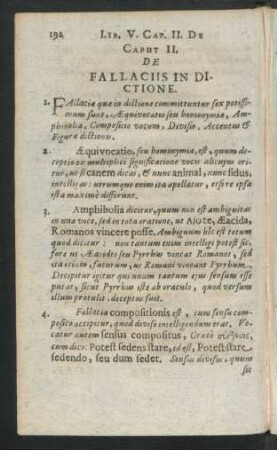 192 LIB. V. CAP. II. DE
CAPUT II.
DE
FALLACIIS IN DI-
CTIONE.
1. FAllaciæ quæ in dictione committuntur sex potissi-
mum sunt, Æquivocatio seu homonymia, Am-
phibolia, Compositio vocum, Divisio, Accentus &
Figura dictionis.
2. Æquivocatio, seu homonymia, est, quum de-
ceptio ex multiplici significatione vocis alicujus ori-
tur, ut si canem dicas, & nunc animal, nunc sidus,
intelligas: utrumque enim ita apellatur, et si re ipsa
ista maximè differunt.
3. Amphibolia dicitur, quum non est ambiguitas
in una voce, sed in tota oratione, ut Aio te, Æacida,
Romanos vincere posse. Ambiguum hîc est totum
quod dicitur: non tantum enim intelligi potest sic,
fore ut Æacides seu Pyrrhus vincat Romanos, sed
etiam, futurum, ut Romani vincant Pyrrhum.
Decipitur igitur qui unum tantum ejus sensum esse
putat, sicut Pyrrhus est ab oraculo, quod versum
illum protulit, deceptus suit.
4. Fallacia compositionis est, cum sensu com-
posito accipitur, quod diviso intelligendum erat. Vo-
catur autem sensus compositus, Græcè
cum dico: Potest sedens stare, id est, Potest stare
sedendo, seu dum sedet. Sensus divisus, quum
sic